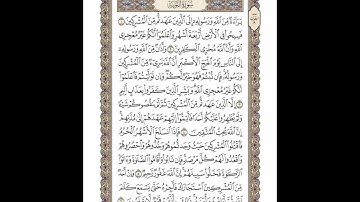 سُورَةُ التَّوْبَةِ
بَرَآءَةٌ مِّنَ ٱللَّهِ وَرَسُولِهِۦٓ إِلَى ٱلَّذِينَ عَٰهَدتُّم مِّنَ ٱلْمُشْرِكِينَ ١
فَسِيحُوا۟ فِى ٱلْأَرْضِ أَرْبَعَةَ أَشْهُرٍ وَٱعْلَمُوٓا۟ أَنَّكُمْ غَيْرُ مُعْجِزِى
ٱللَّهِ وَأَنَّ ٱللَّهَ مُخْزِى ٱلْكَٰفِرِينَ ٢ وَأَذَٰنٌ مِّنَ ٱللَّهِ وَرَسُولِهِۦٓ
إِلَى ٱلنَّاسِ يَوْمَ ٱلْحَجِّ ٱلْأَكْبَرِ أَنَّ ٱللَّهَ بَرِىٓءٌ مِّنَ ٱلْمُشْرِكِينَ
وَرَسُولُهُۥ فَإِن تُبْتُمْ فَهُوَ خَيْرٌ لَّكُمْ وَإِن تَوَلَّيْتُمْ فَٱعْلَمُوٓا۟
أَنَّكُمْ غَيْرُ مُعْجِزِى ٱللَّهِ وَبَشِّرِ ٱلَّذِينَ كَفَرُوا۟ بِعَذَابٍ أَلِيمٍ
٣ إِلَّا ٱلَّذِينَ عَٰهَدتُّم مِّنَ ٱلْمُشْرِكِينَ ثُمَّ لَمْ يَنقُصُوكُمْ شَيْـًٔا
وَلَمْ يُظَٰهِرُوا۟ عَلَيْكُمْ أَحَدًا فَأَتِمُّوٓا۟ إِلَيْهِمْ عَهْدَهُمْ إِلَىٰ مُدَّتِهِمْ
إِنَّ ٱللَّهَ يُحِبُّ ٱلْمُتَّقِينَ ٤ فَإِذَا ٱنسَلَخَ ٱلْأَشْهُرُ ٱلْحُرُمُ
فَٱقْتُلُوا۟ ٱلْمُشْرِكِينَ حَيْثُ وَجَدتُّمُوهُمْ وَخُذُوهُمْ وَٱحْصُرُوهُمْ
وَٱقْعُدُوا۟ لَهُمْ كُلَّ مَرْصَدٍ فَإِن تَابُوا۟ وَأَقَامُوا۟ ٱلصَّلَوٰةَ وَءَاتَوُا۟
ٱلزَّكَوٰةَ فَخَلُّوا۟ سَبِيلَهُمْ إِنَّ ٱللَّهَ غَفُورٌ رَّحِيمٌ ٥ وَإِنْ أَحَدٌ
مِّنَ ٱلْمُشْرِكِينَ ٱسْتَجَارَكَ فَأَجِرْهُ حَتَّىٰ يَسْمَعَ كَلَٰمَ